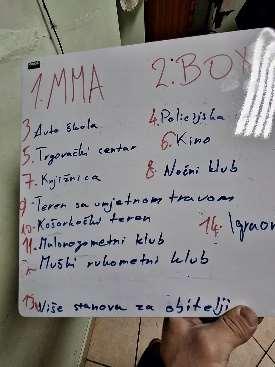 1. MMA
2. BOX
3. Auto škola
4. Policijska
5. Trgovački centar
6. Kino
7. Knjižnica
8. Noćni klub
9. Teren sa umjetnom travom
10. Košarkaški teren
11. Malonogometni klub
Muški rukometni klub
14. Igraon
13. Više stanova za obitelji